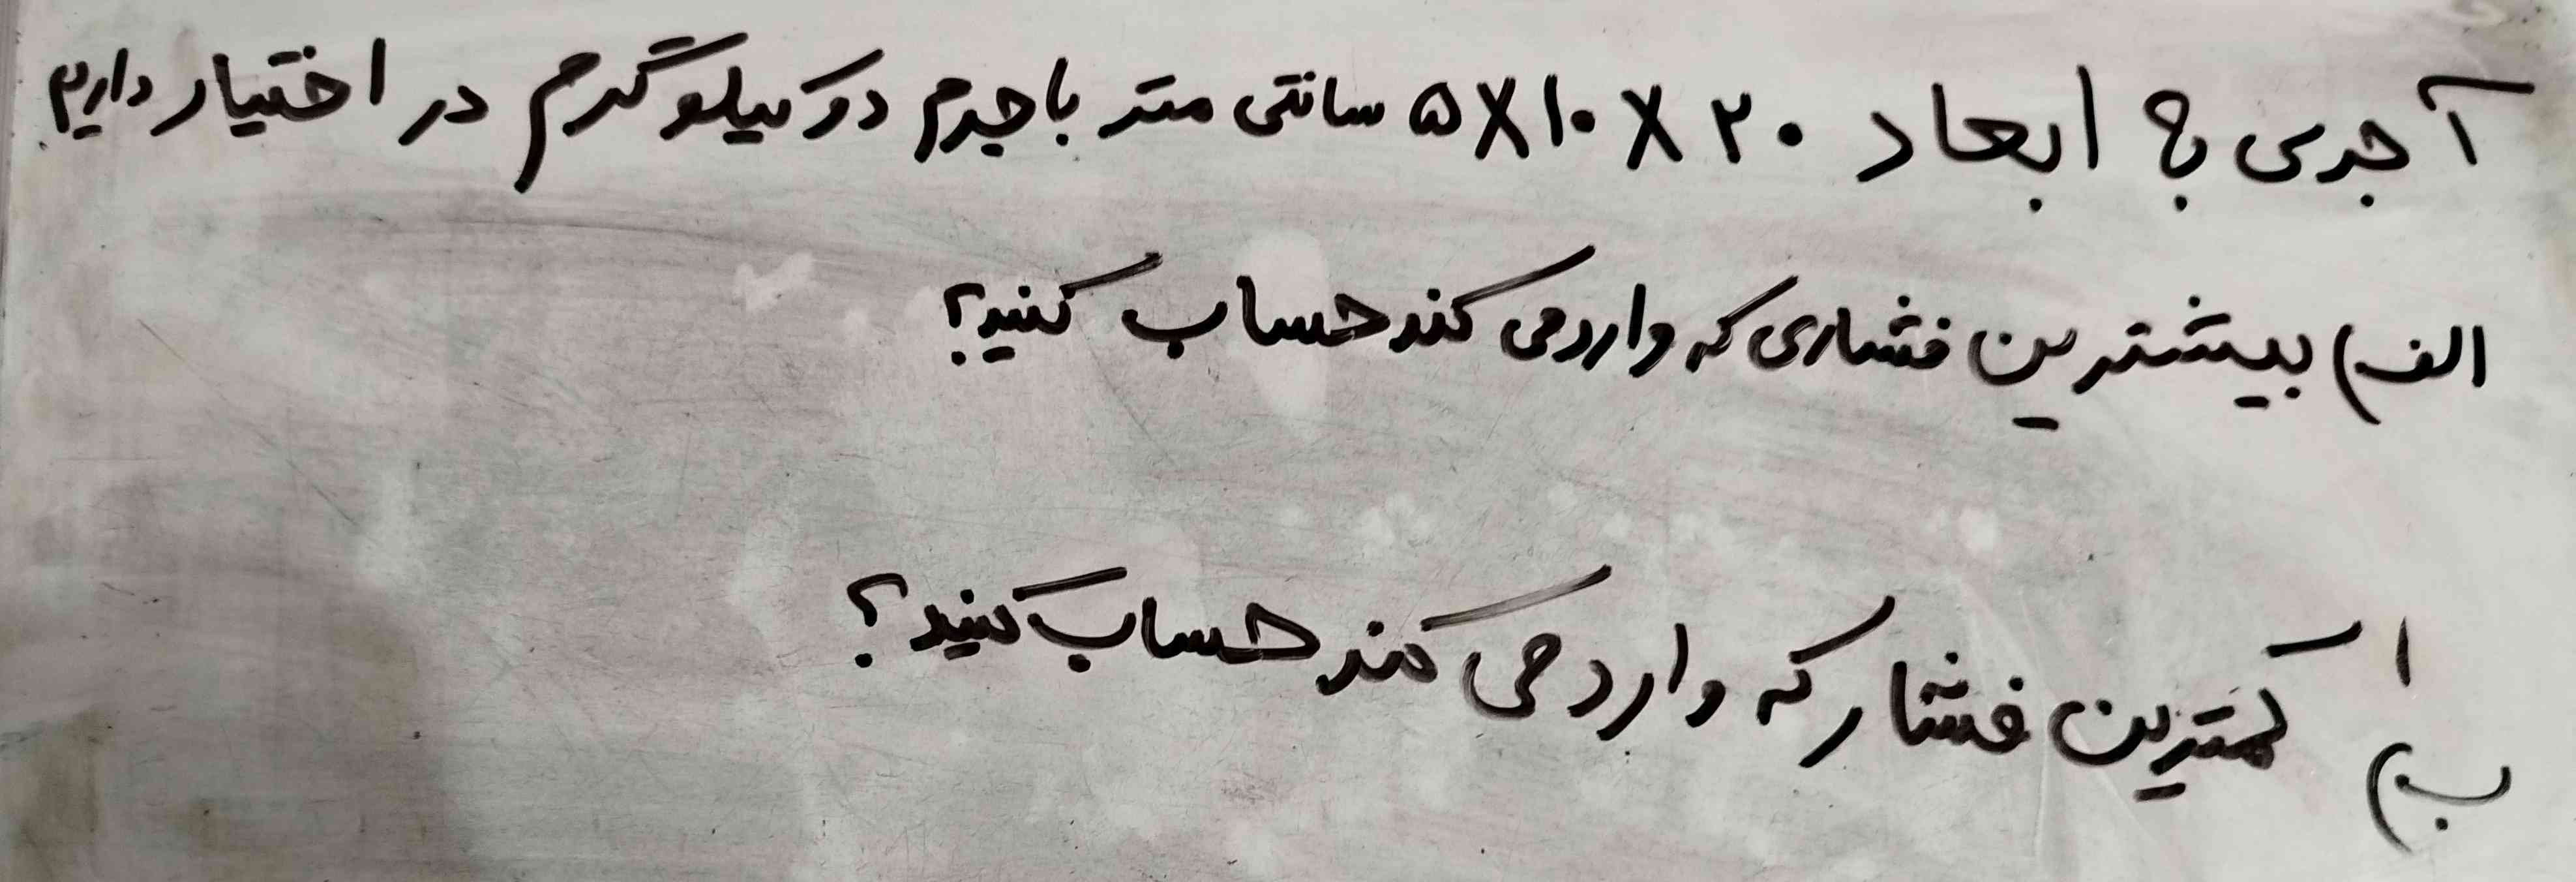 آجری به ابعاد ۲۰ X ۱۰ X ۵ سانتی متر با جرم دو کیلوگرم در اختیار داریم
الف) بیشترین فشاری که وارد می کند حساب کنید؟
ب) کمترین فشار که وارد می کند حساب کنید؟